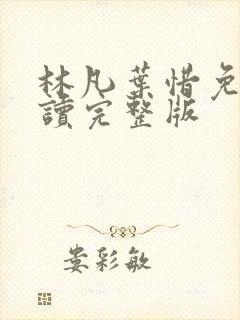 林凡葉惜免
讀完整版
婁彩敏